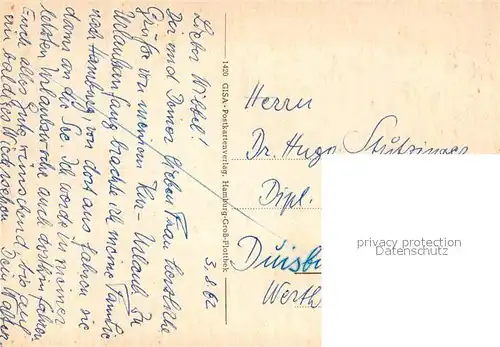 3.8.62
Lieber Wibbel!
Dir und Deiner lieben Frau herzliche
Grüße von meinem Urlaub. Zu
Urlaubsanfang brachte ich meine Familie
nach Hamburg, von dort aus fahren sie
dann an die See. Ich werde in meiner
letzten Urlaubswoche auch dorthin fahren.
Euch alles Gute wünschend, bis auf
ein baldiges Wiedersehen
Dein Walter
1420 GISA-Postkartenverlag, Hamburg-Groß-Flottbek
Herrn
Dr. Hugo
Dipl.
Duisb
Werth
privacy protection
AnsichtskartenVersand.com